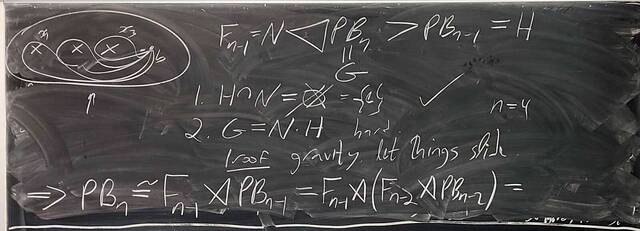 F_{n-1} = N ◁ PB_n > PB_{n-1} = H
x x_3
x x x b
||
G
1. H∩N = ∅ = {1} ✓ n=4
2. G = N·H hard
Proof gravity let things slide.
⇒ PB_n ≅ F_{n-1} ⋊ PB_{n-1} = F_{n-1} ⋊ (F_{n-2} ⋊ PB_{n-2}) =